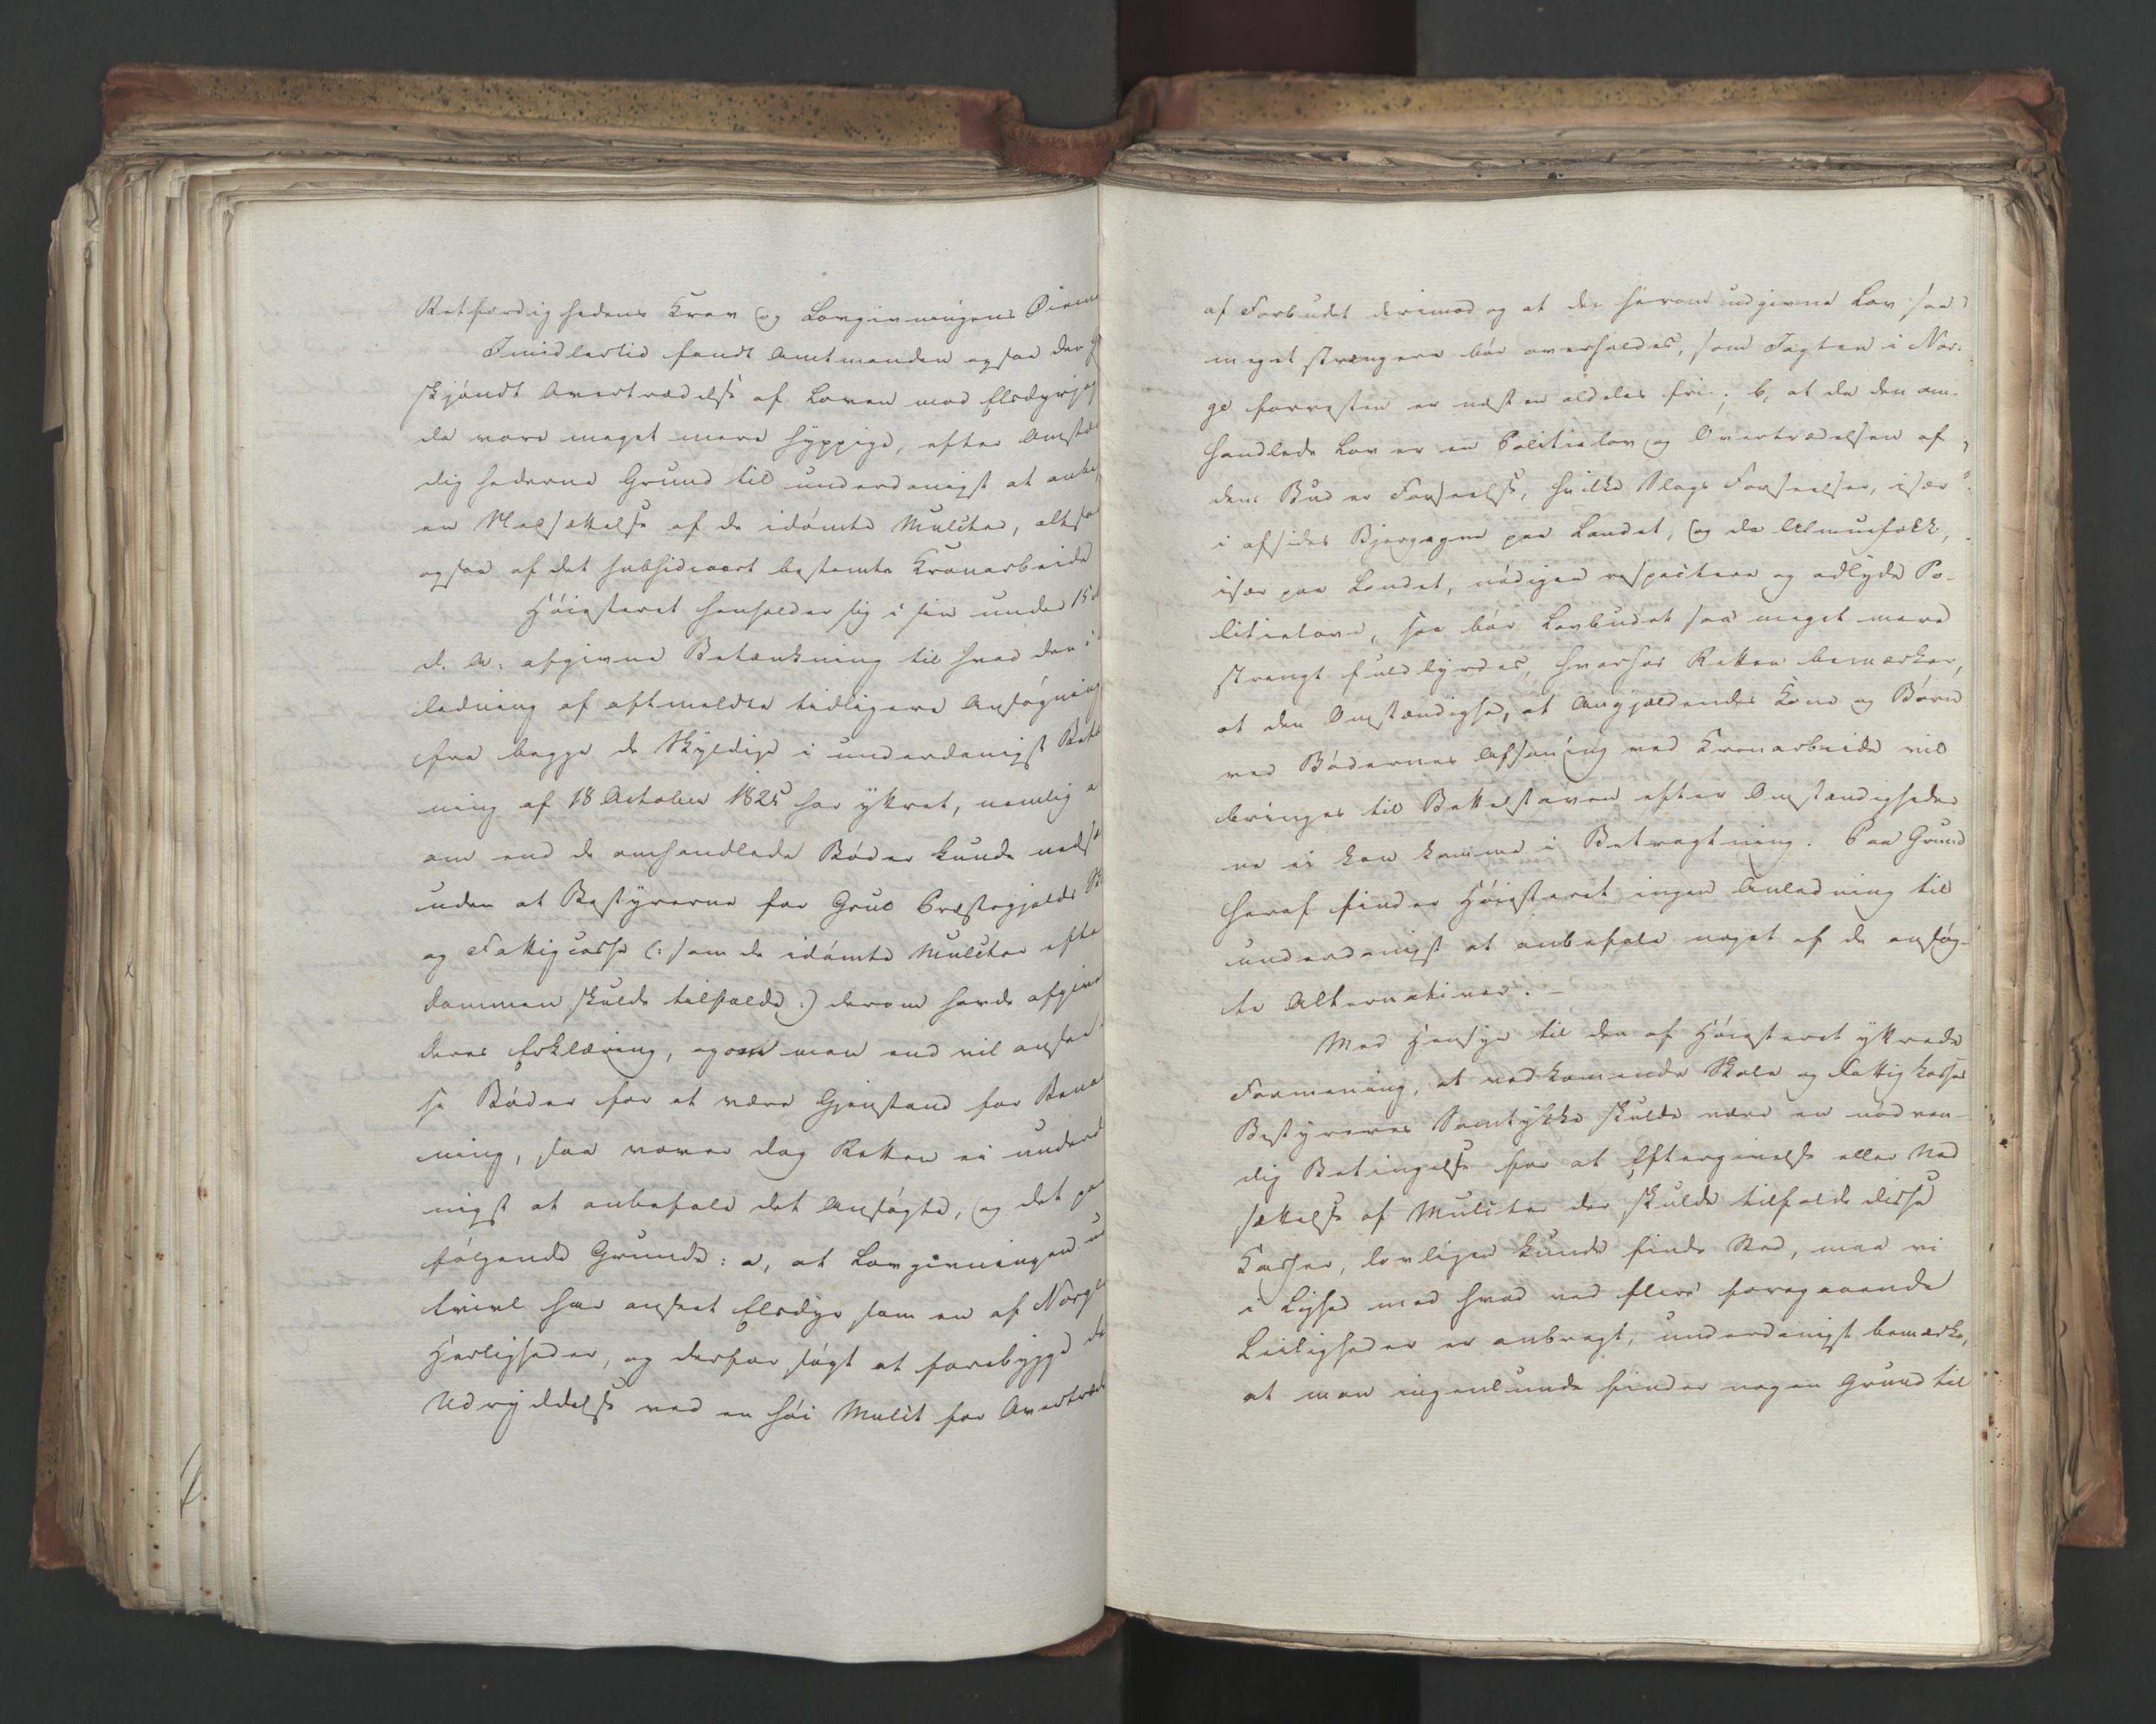 Retfærdighedens Krav og Lovgivningens Øiem
Imidlertid fandt Amtmanden ogsaa der
skjøndt Overtrædelse af Loven mod Elsdyrjag
de vare meget mere hyppige, efter Omstæn
dighederne Grund til underdanigst at anbe
en Nedsættelse af de idømte Mulcter, altsaa
ogsaa af det subsidiært bestemte Kronarbeide
Høiesteret henholder sig i sin under 15d
d. A. afgivne Betænkning til hvad den i
ledning af oftmeldte tidligere Ansøgning
fra begge de Skyldige i underdanigst Betæ
ning af 18 October 1825 har yttret, nemlig a
om end de omhandlede Bøder kunde nedsæ
uden at Bestyrerne for Grue Præstegjelds Sk
og Fattigcasse (: som de idømte Mulcter efte
dommen skulde tilfalde :) derom havde afgive
deres Erklæring, og om man end vil ansee
se Bøder for at være Gjenstand for Benaa
ning, saa vover dog Retten ei underd
nigst at anbefale det Ansøgte, og det paa
følgende Grunde: a, at Lovgivningen u
tvivl har anseet Elsdyr som en af Norges
Herligheder, og derfor søgt at forebygge de
Udryddelse ved en høi Mulct for Overtræde
af Forbudet derimod og at den herom udgivne Lov saa
meget strengere bør overholdes, som Jagten i Nor-
ge forresten er næsten aldeles fri; b, at da den om-
handlede Lov er en Politielov og Overtrædelsen af
dens Bud er Forseelse, hvilke Slags Forseelser, især
i afsides Bjergegne paa Landet, og da Almuefolk,
især paa Landet, nødigen respectere og adlyde Po-
litielove, saa bør Lovbudet saa meget mere
strengt fuldbyrdes, hvorhos Retten bemærker,
at den Omstændighed, at Angjældendes Kone og Børn
ved Bødernes Afsoning med Kronarbeide vil
bringes til Bettelstaven efter Omstændigheder
ne ei kan komme i Betragtning. Paa Grund
heraf finder Høiesteret ingen Anledning til
underdanigst at anbefale noget af de ansøg-
te Alternativer. –
Med Hensyn til den af Høiesteret yttrede
Formening, at vedkommende Skole og Fattigkasses
Bestyreres Samtykke skulde være en nødven-
dig Betingelse for at Eftergivelse eller Ned
sættelse af Mulcter der skulde tilfalde disse
Casser, lovligen kunde finde Sted, maa vi
i Lighed med hvad ved flere foregaaende
Leiligheder er anbragt, underdanigst bemærke,
at man ingenlunde finder nogen Grund til